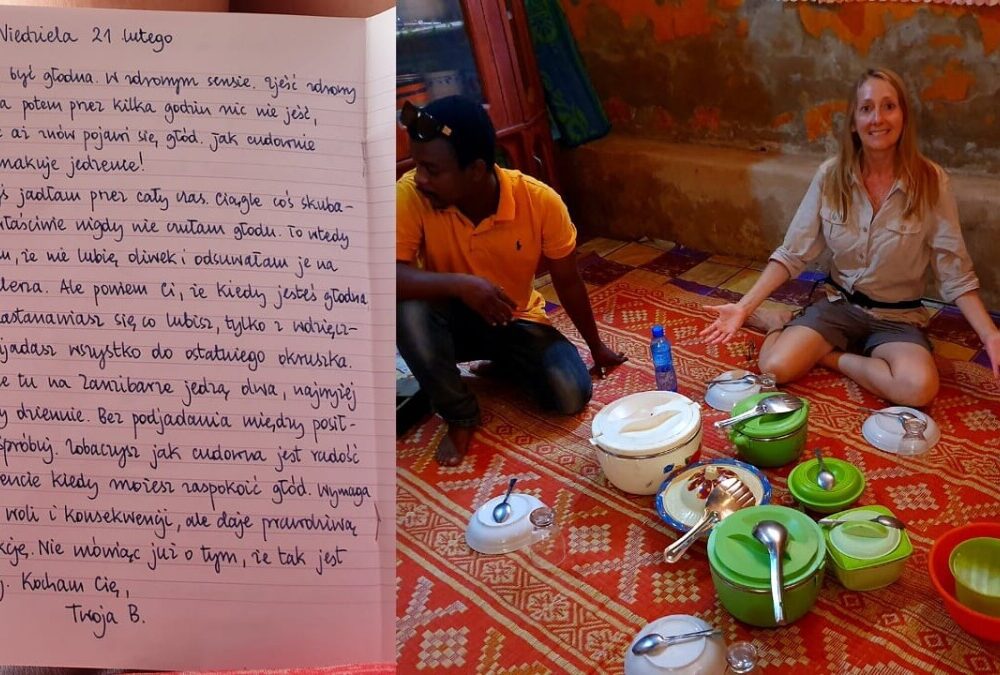 Niedziela 21 lutego
być głodna. W zdrowym sensie. Zjeść zdrowy
a potem przez kilka godzin nic nie jeść,
aż znów pojawi się głód. Jak cudownie
smakuje jedzenie!
jadłam przez cały czas. Ciągle coś skuba-
właściwie nigdy nie czułam głodu. To wtedy
że nie lubię oliwek i odsuwałam je na
Ale powiem Ci, że kiedy jesteś głodna
zastanawiasz się co lubisz, tylko z wdzięcz-
zjadasz wszystko do ostatniego okruszka.
tu na Zanzibarze jedzą dwa, najwyżej
dziennie. Bez podjadania między posił-
spróbuj. Zobaczysz jak cudowna jest radość
kiedy możesz zaspokoić głód. Wymaga
woli i konsekwencji, ale daje prawdziwą
Nie mówiąc już o tym, że tak jest
Kocham Cię,
Twoja B.